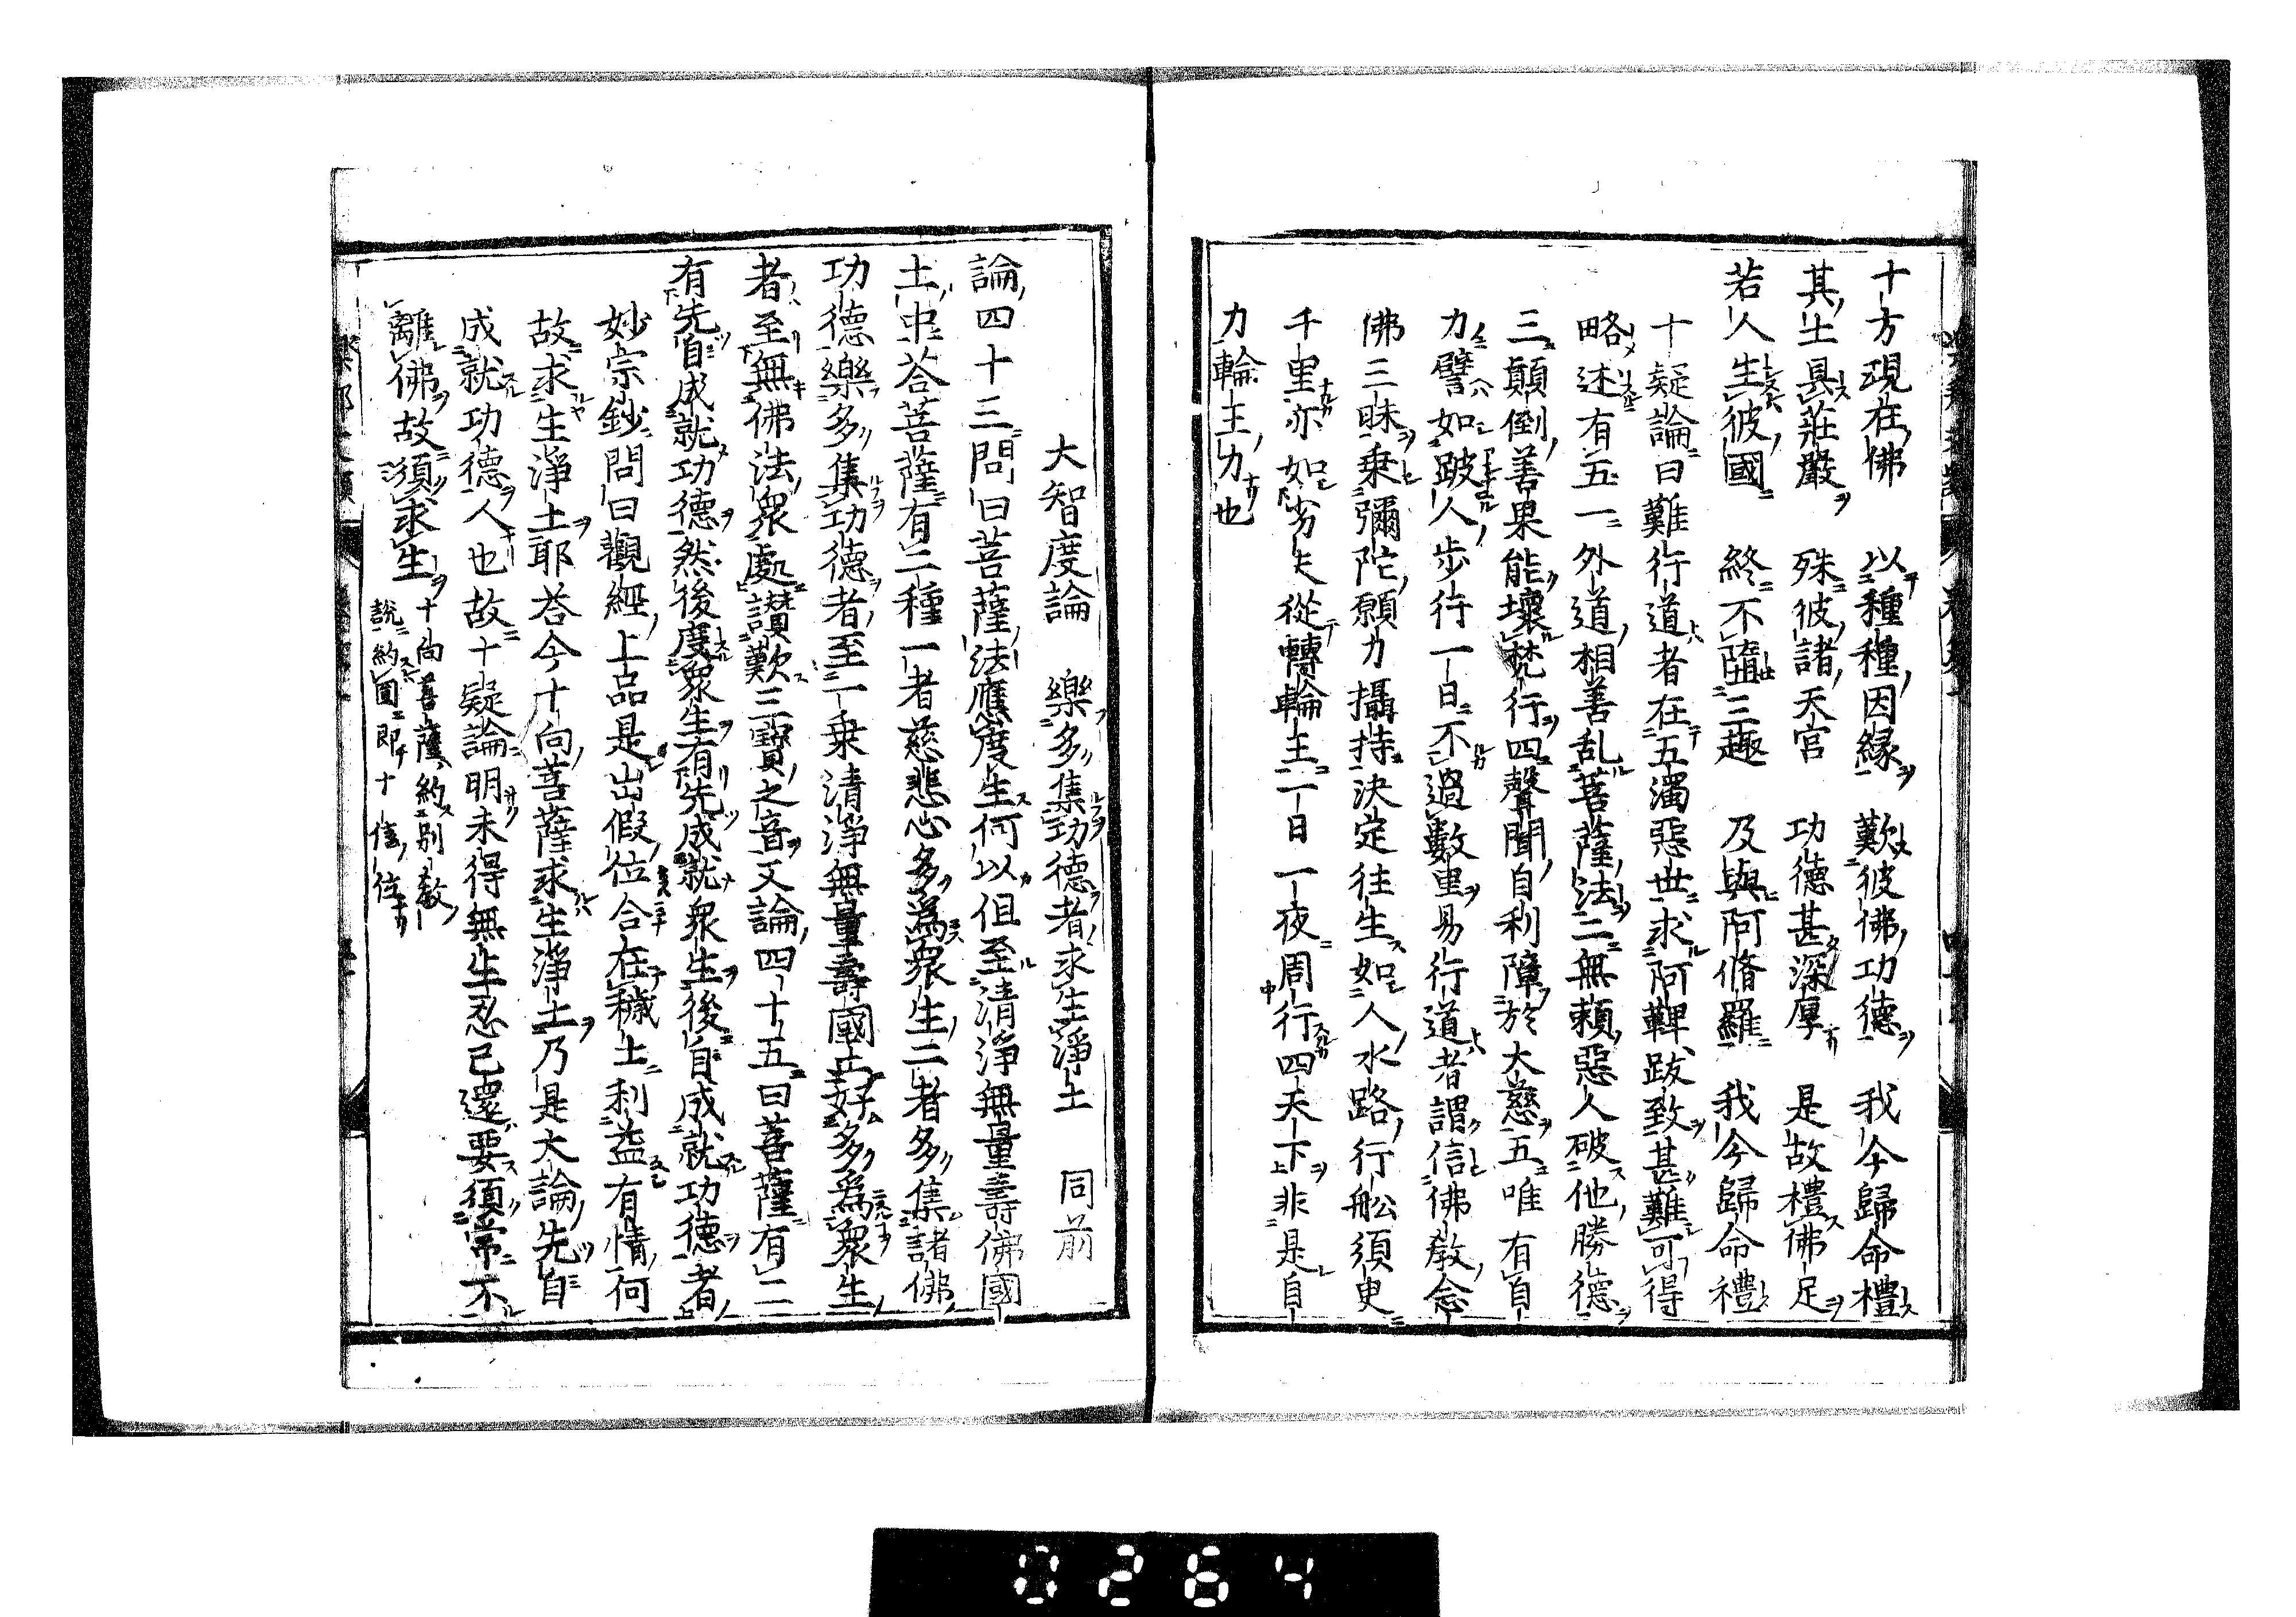 十方現在佛　以種種因緣　歎彼佛功德　我今歸命禮
其土具莊嚴　殊彼諸天宮　功德甚深厚　是故禮佛足
若人生彼國　終不墮三趣　及與阿脩羅　我今歸命禮
十疑論曰難行道者在五濁惡世求阿鞞跋致甚難可得
略述有五一外道相善乱菩薩法二無賴惡人破他勝德
三顛倒善果能壞梵行四聲聞自利障於大慈五唯有自
力譬如跛人步行一日不過數里易行道者謂信佛教念
佛三昧乘彌陀願力攝持決定往生如人水路行舩須臾
千里亦如劣夫從轉輪王一日一夜周行四天下非是自
力輪王力也
大智度論　樂多集功德者求生淨土　同前
論四十三問曰菩薩法應度生何以但至清淨無量壽佛國
土中荅菩薩有二種一者慈悲心多為眾生二者多集諸佛
功德樂多集功德者至一乘清淨無量壽國土好多為眾生
者至無佛法眾處讃歎三寶之音又論四十五曰菩薩有二
有先自成就功德然後度眾生有先成就眾生後自成就功德者
妙宗鈔問曰觀經上品是出假位合在穢土利益有情何
故求生淨土耶荅今十向菩薩求生淨土乃是大論先自
成就功德人也故十疑論明未得無生忍已還要須常不
離佛故須求生
十向菩薩約別教
說約圓即十信位
0264